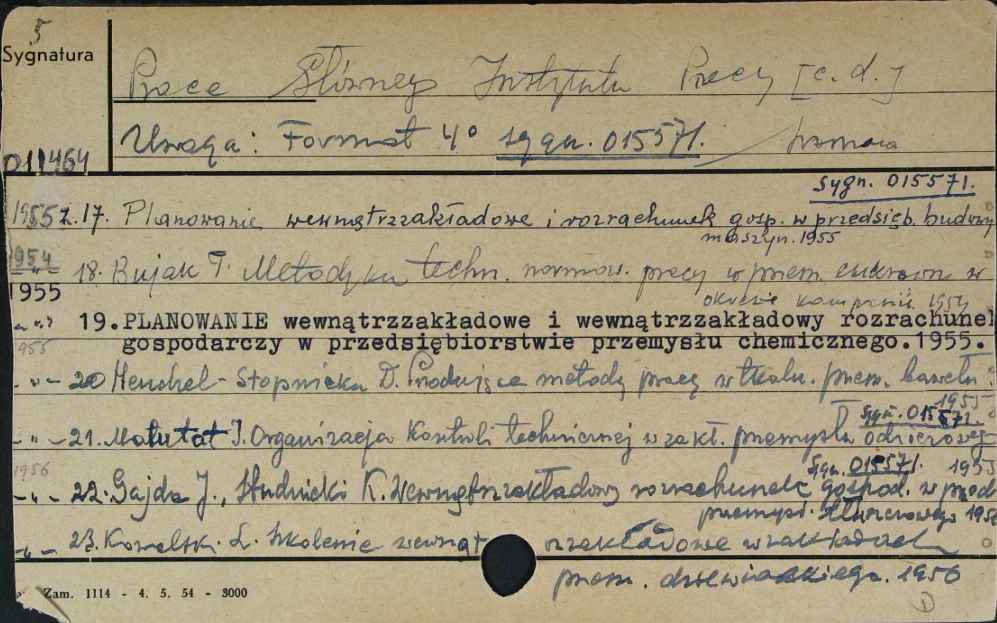 5
Sygnatura
Prace Głównego Instytutu Pracy [c.d.]
Uwaga: Format 4° sygn. 015571.
011464
sygn. 015571.
1955 z.17. Planowanie wewnątrzzakładowe i rozrachunek gosp. w przedsięb. budowy
maszyn. 1955
1954 18. Bujak T. Metodyka techn. normow. pracy w przem. cukrown. w
okresie kampanii. 1954
1955
" 19. PLANOWANIE wewnątrzzakładowe i wewnątrzzakładowy rozrachunek
gospodarczy w przedsiębiorstwie przemysłu chemicznego.1955.
1955
- " - 20 Henshel-Stopnicka D. Przodujące metody pracy w tkaln. przem. bawełn.
1955
sygn. 015571.
- " - 21. Matutat J. Organizacja kontroli technicznej w zakł. przemysłu odzieżowego
1955
1956 sygn. 015571.
- " - 22. Gajda J., Studnicki K. Wewnątrzzakładowy rozrachunek gospod. w przed
przemysł. 1956
- " - 23. Kowalski L. Szkolenie wewnątrzzakładowe w zakładach
przem. drzewiarskiego. 1956
Zam. 1114 - 4. 5. 54 - 3000
D